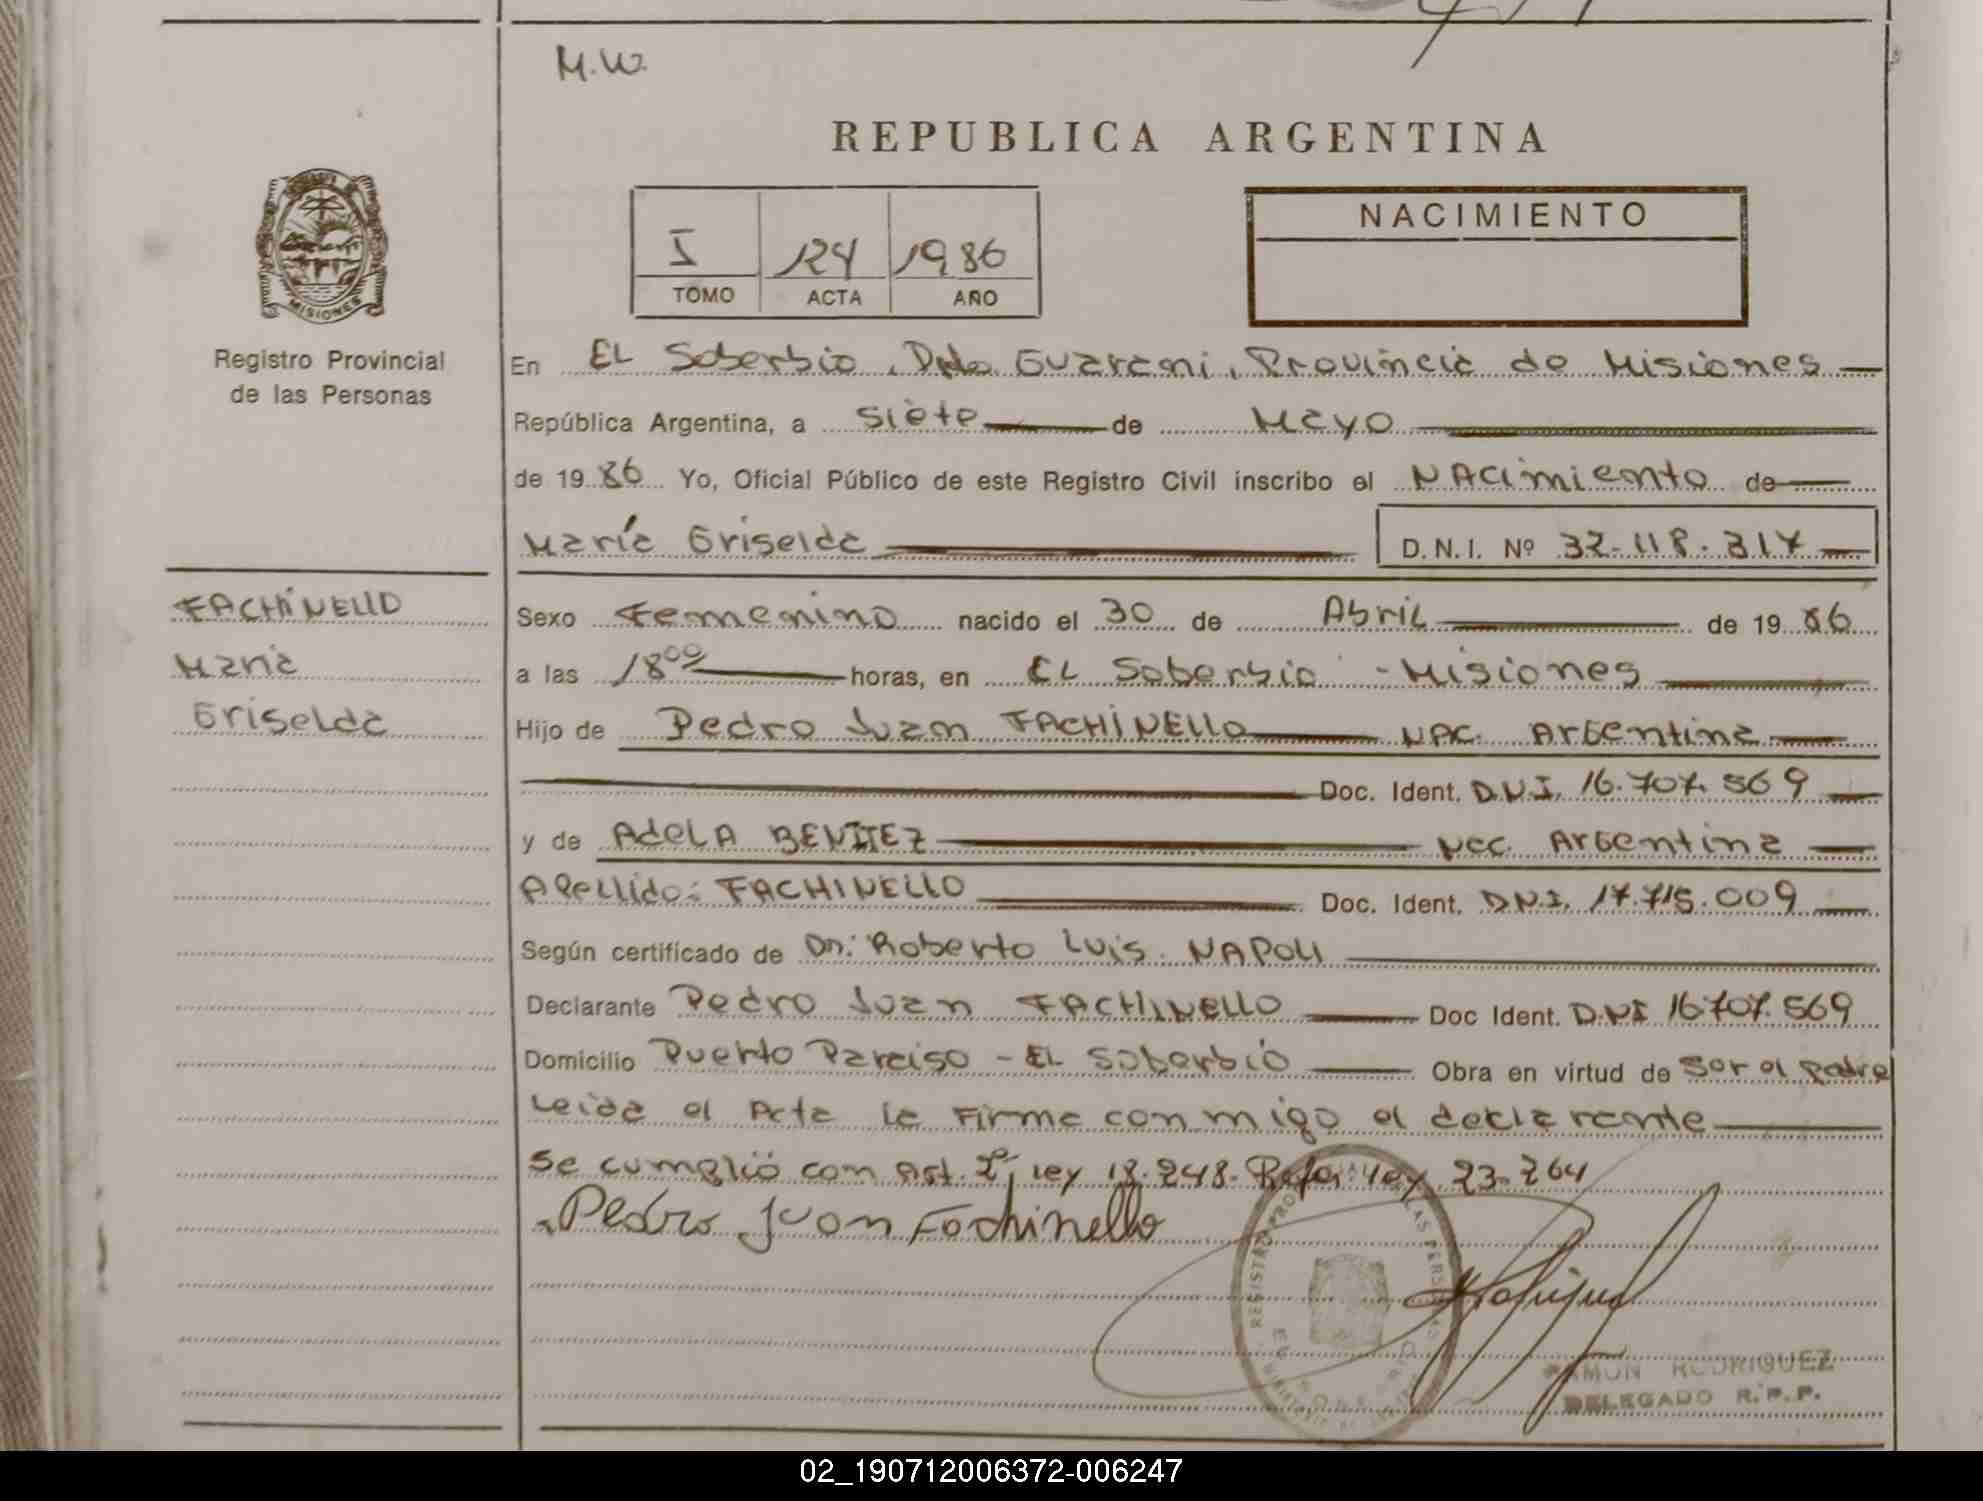 M.W.
REPUBLICA ARGENTINA
I 124 1986
TOMO ACTA AÑO
NACIMIENTO
MISIONES
Registro Provincial
de las Personas
En EL Soberbio, Dpto Guarani, Provincia de Misiones
República Argentina, a siete de Mayo
de 1986 Yo, Oficial Público de este Registro Civil inscribo el NAcimiento de
María Griselda D.N.I. Nº 32.118.317
FACHINELLO
Maria
Griselda
Sexo Femenino nacido el 30 de Abril de 1986
a las 18°° horas, en EL Soberbio - Misiones
Hijo de Pedro Juan FACHINELLO NAC. Argentina
Doc. Ident. D.N.I. 16.707.569
y de AdeLA BENITEZ Nac. Argentina
Apellido: FACHINELLO Doc. Ident. D.N.I. 17.715.009
Según certificado de Dr: Roberto Luis NAPOLI
Declarante Pedro Juan FACHINELLO Doc Ident. D.N.I 16.707.569
Domicilio Puerto Paraiso - EL Soberbio Obra en virtud de ser el padre
Leida el Acta la Firma con migo el declarante
Se cumplió con Art. 2°, Ley 18.248. Refor. Ley 23.264
Pedro Juan Fachinello
RAMON RODRIGUEZ
DELEGADO R.P.P.
02_190712006372-006247